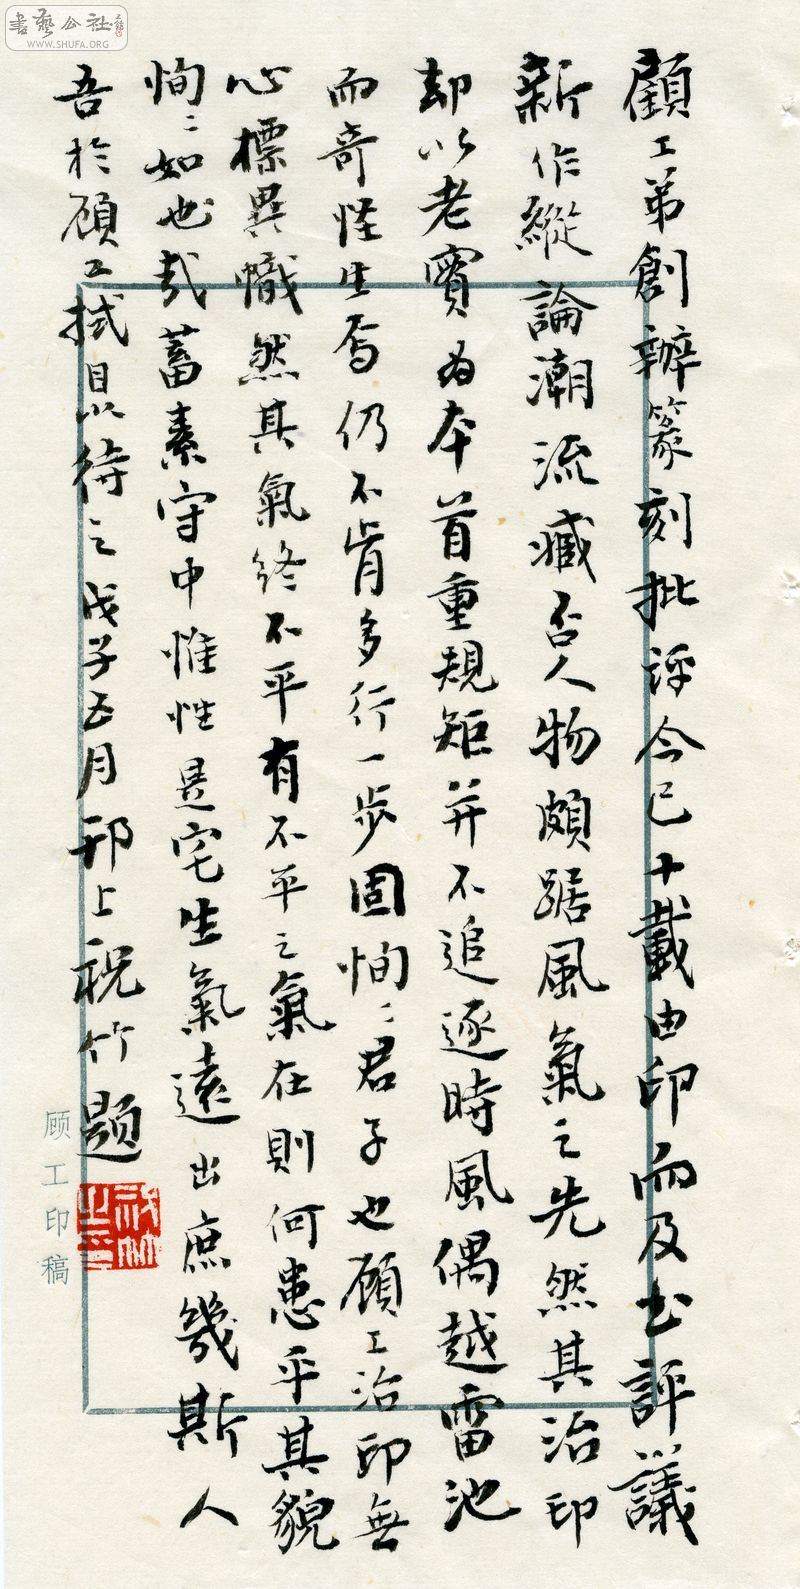 書藝公社
WWW.SHUFA.ORG
顧工弟創辦篆刻批評今已十載由印而及书評議
新作縱論潮流臧否人物頗踞風氣之先然其治印
却以老實为本首重規矩并不追逐時風偶越雷池
而奇怪生焉仍不肯多行一步固恂恂君子也顾工治印無
心標異幟然其氣終不平有不平之氣在則何患乎其貌
恂恂如也哉蓄素守中惟性是宅生氣遠出庶幾斯人
吾於顾工拭目以待之戊子五月邗上祝竹题
顾工印稿